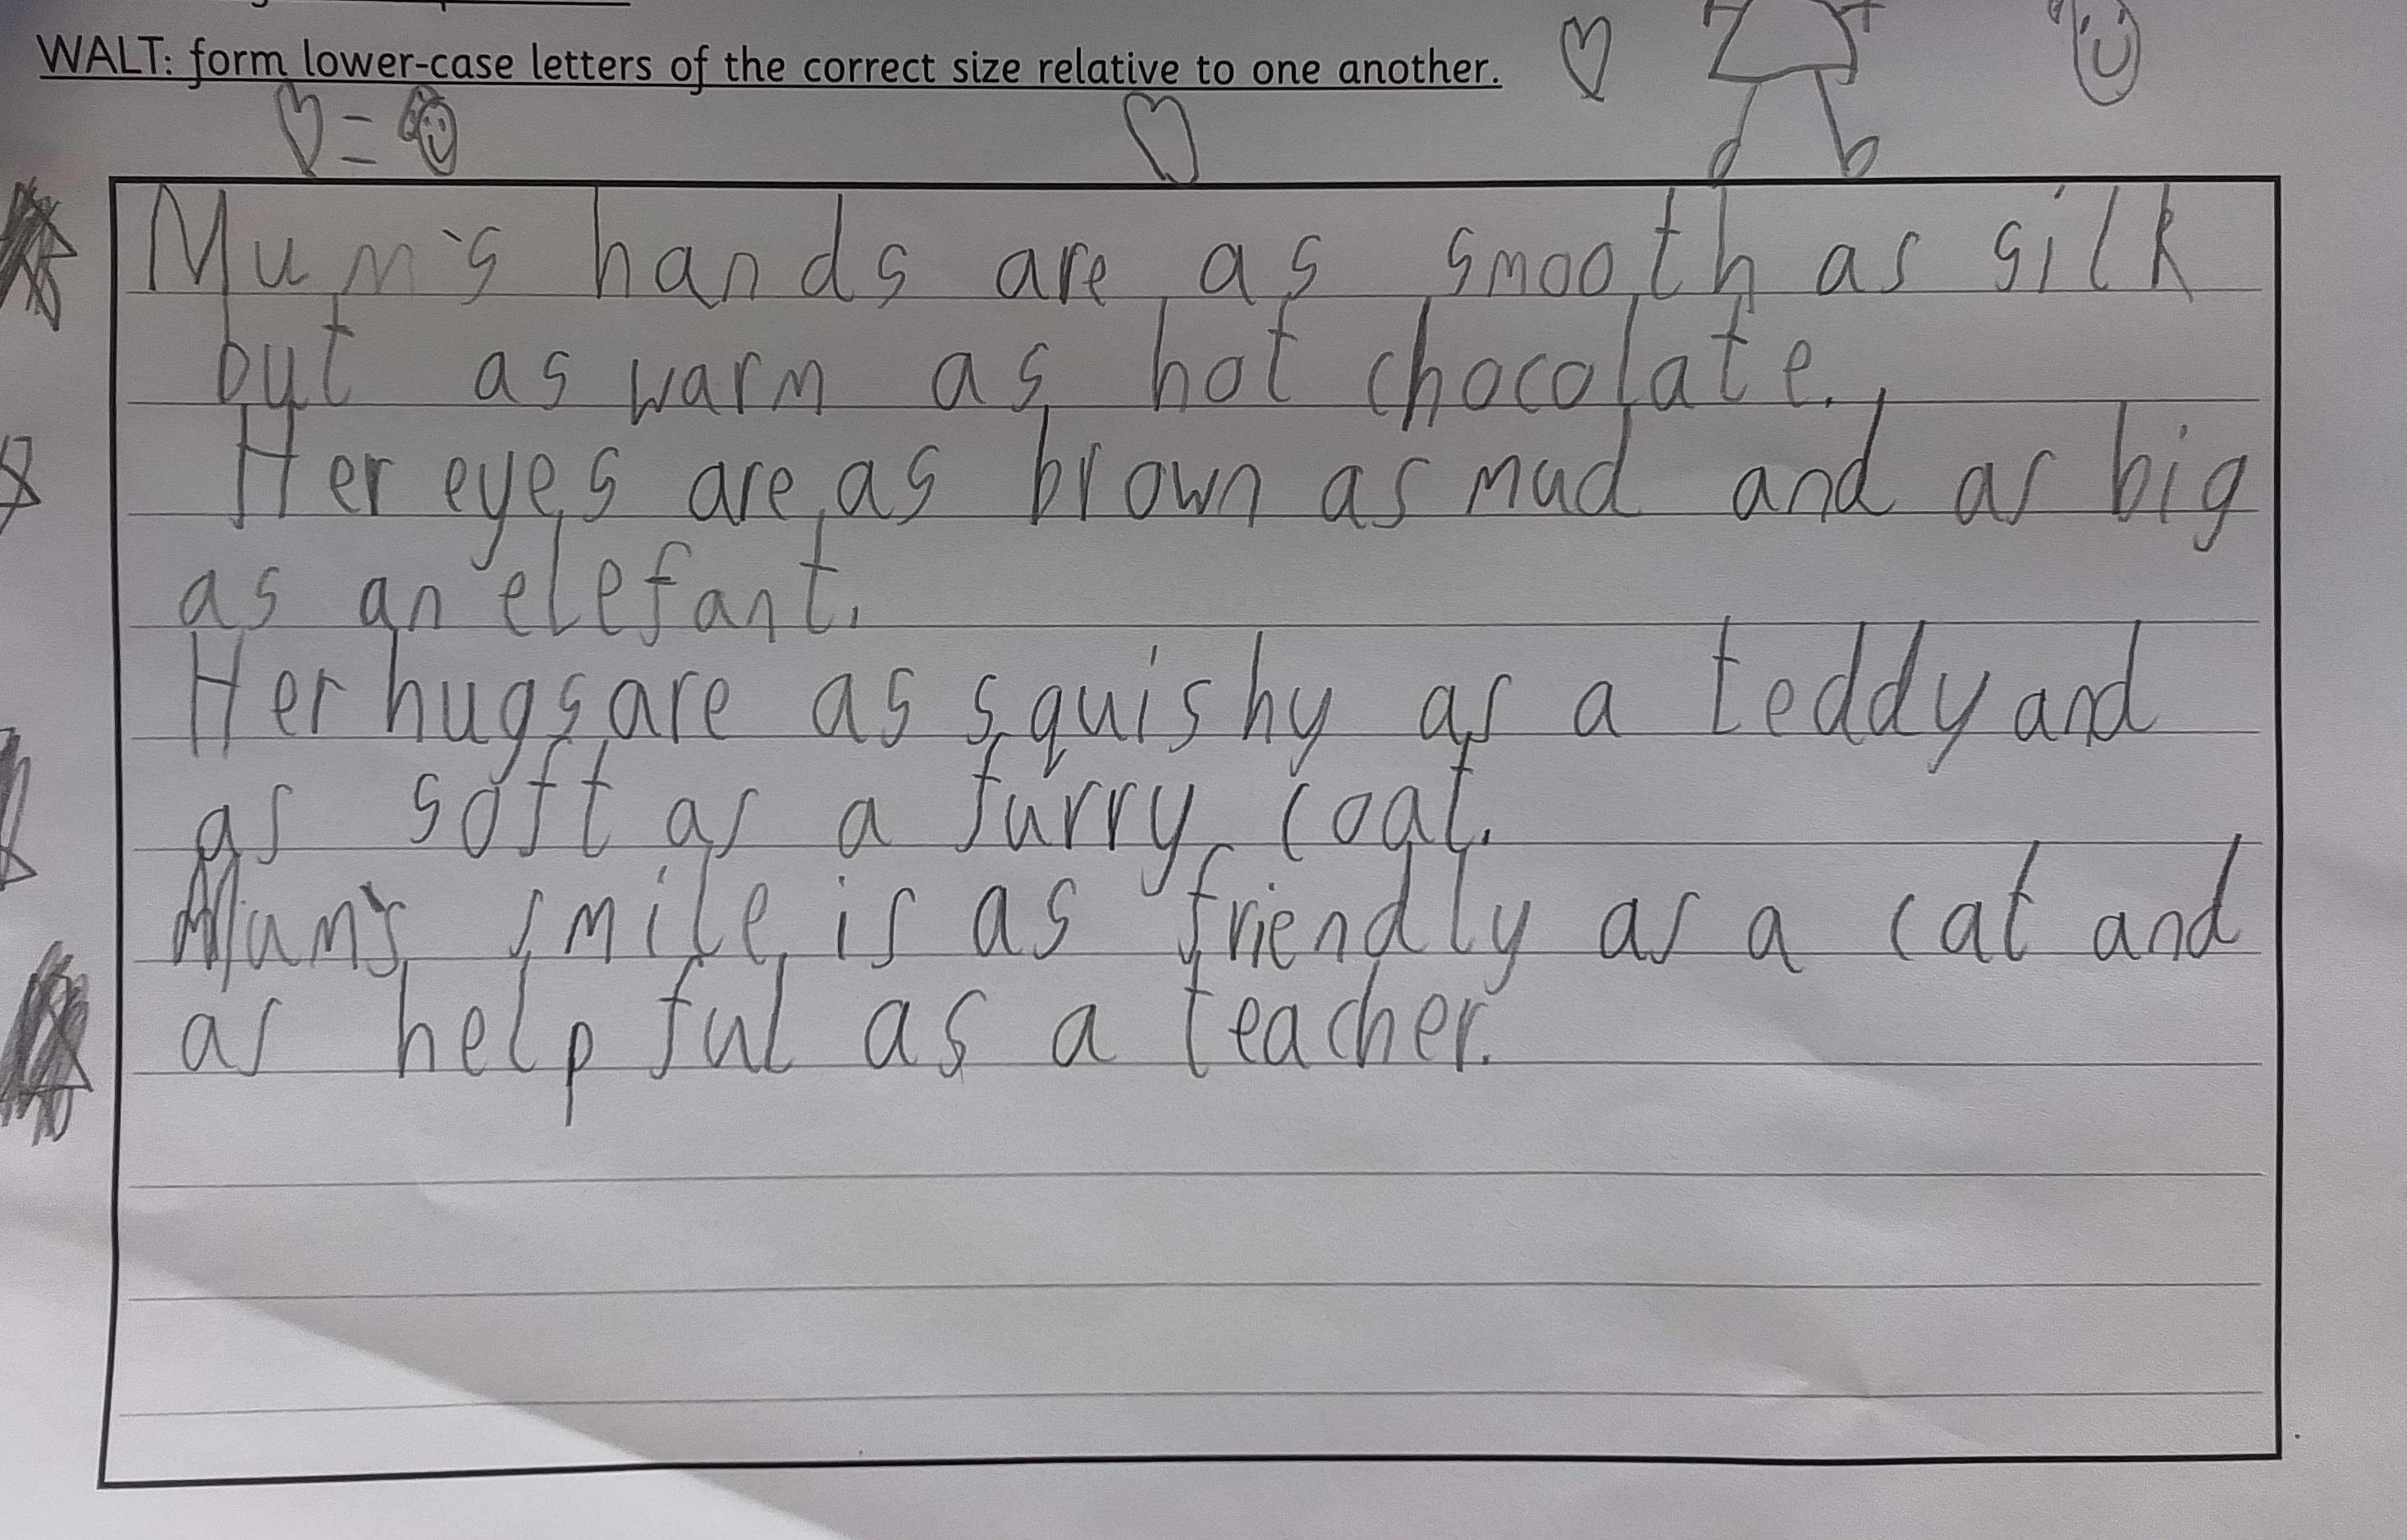 WALT: form lower-case letters of the correct size relative to one another.
Mum's hands are as smooth as silk
but as warm as hot chocolate.
Her eyes are as brown as mud and as big
as an elefant.
Her hugs are as squishy as a teddy and
as soft as a furry coat.
Mum's smile is as friendly as a cat and
as helpful as a teacher.